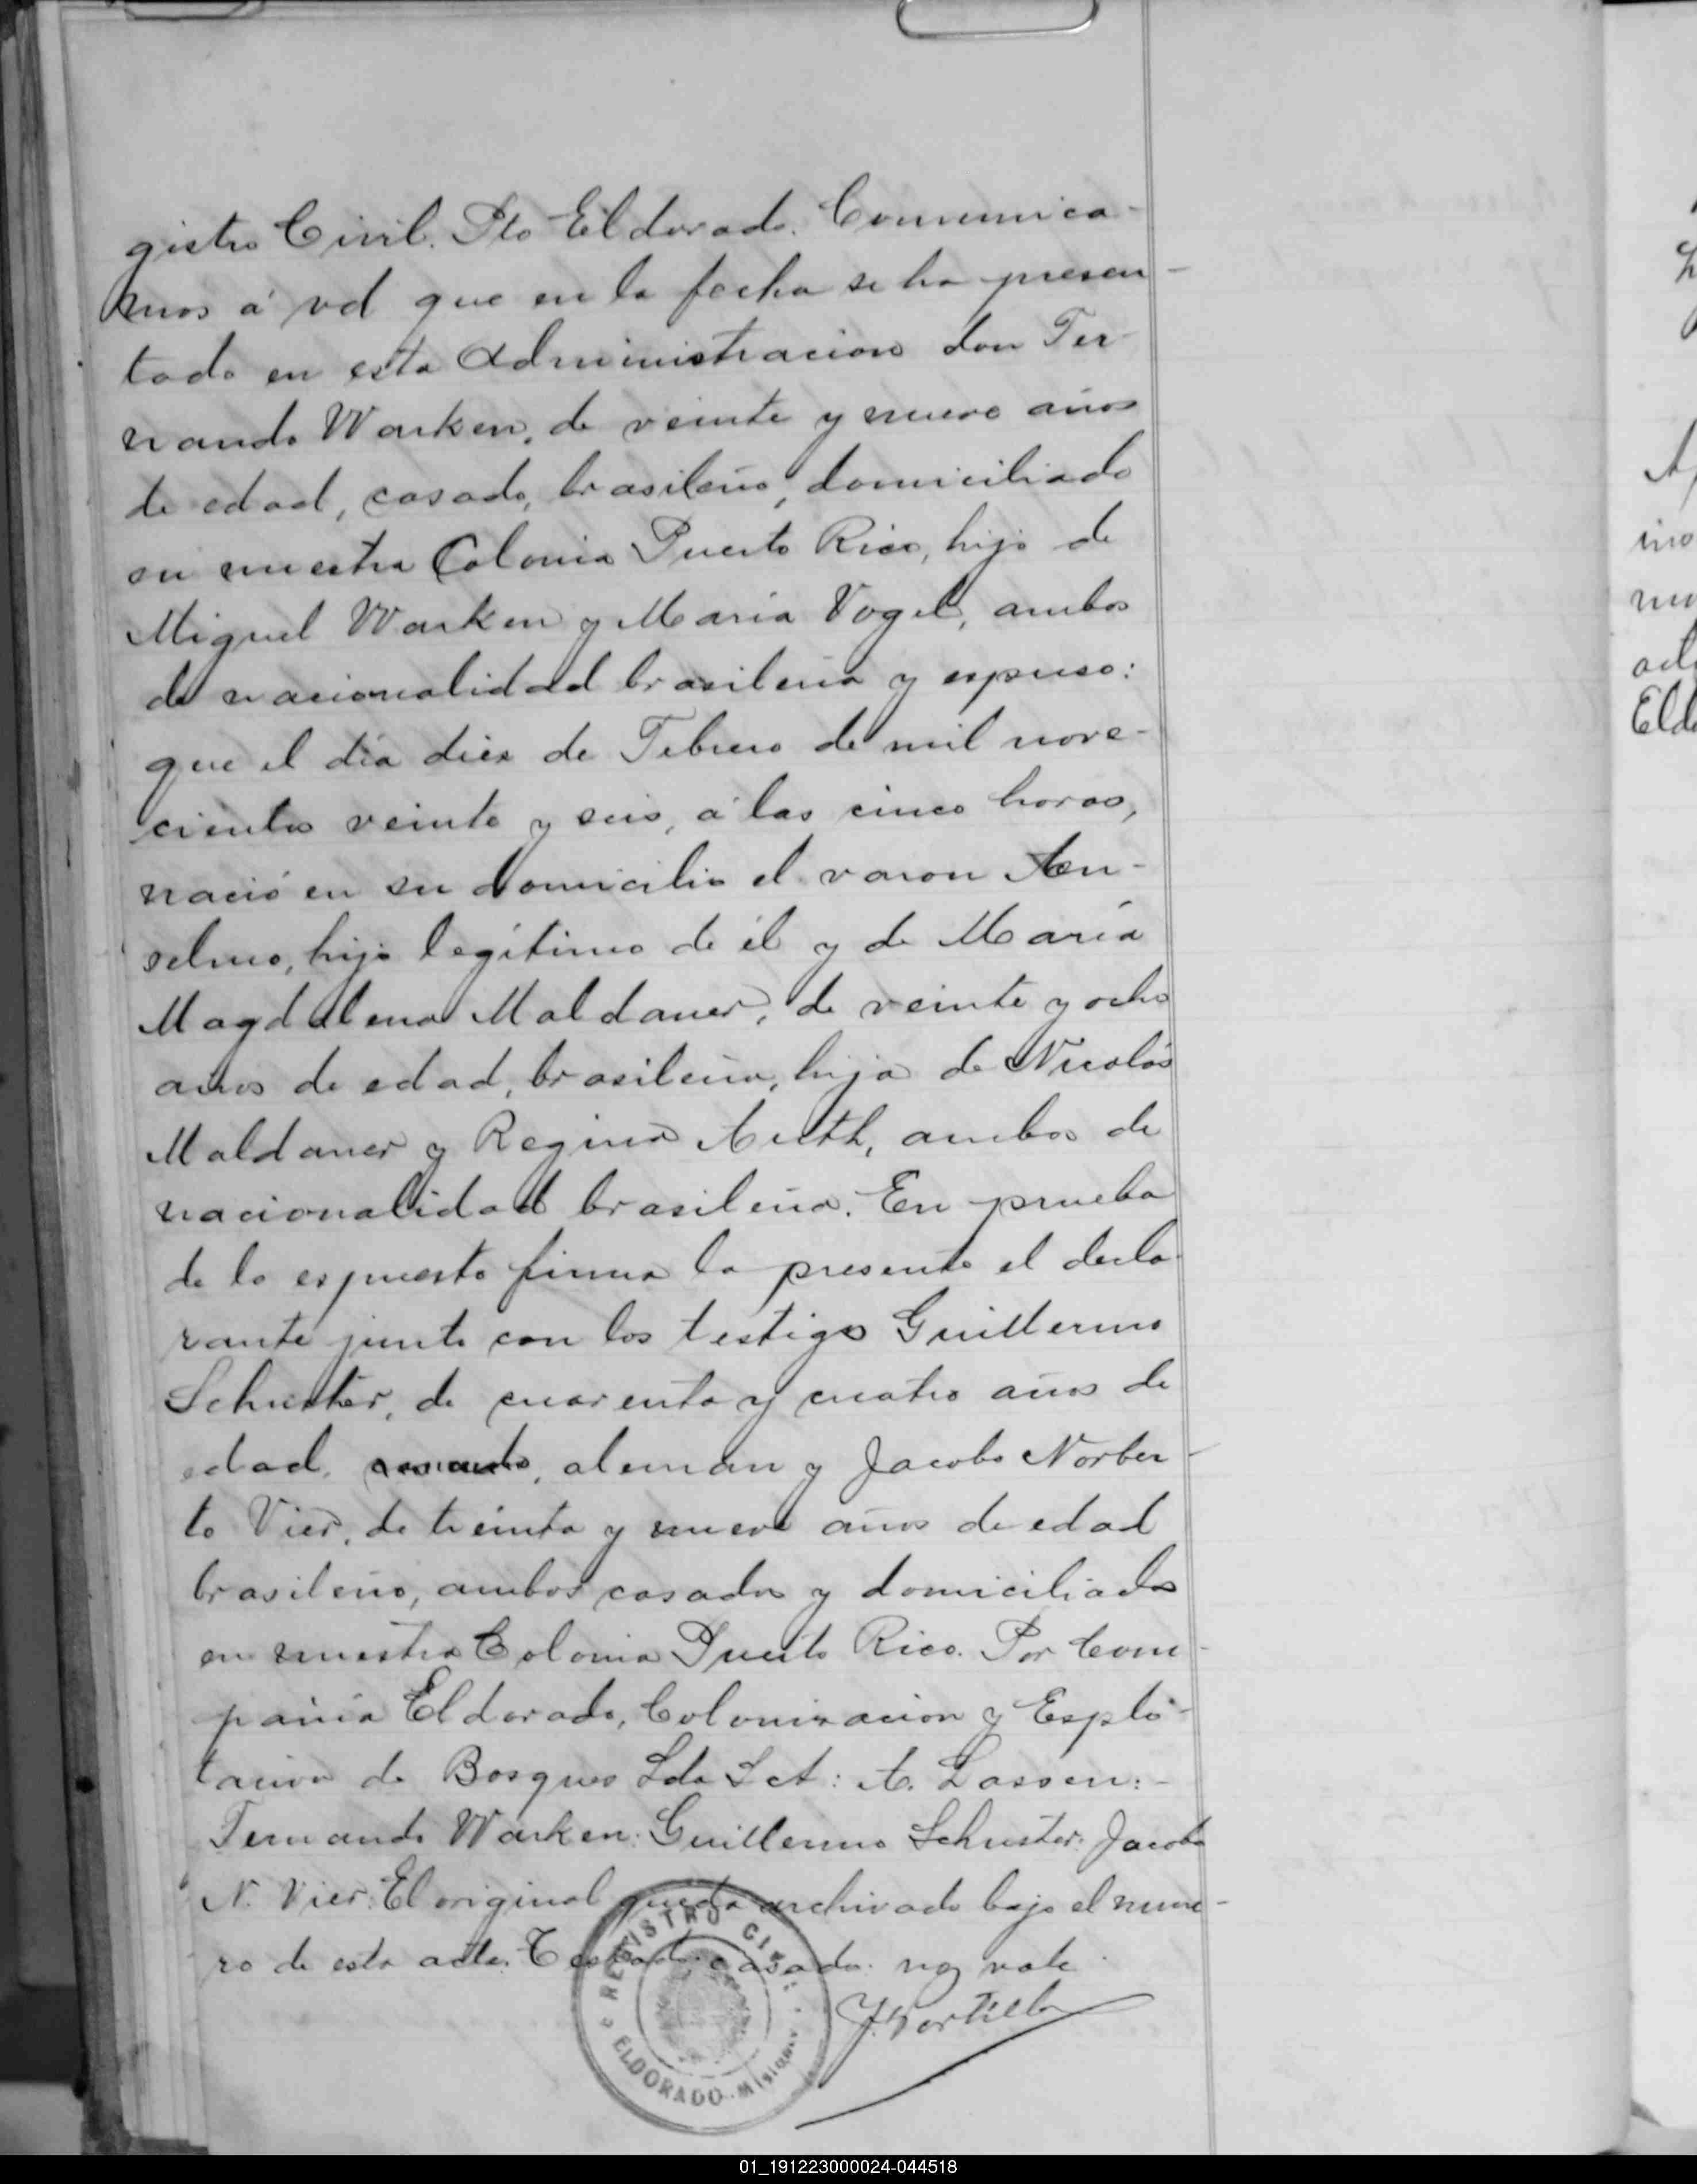 gistro Civil. Pto Eldorado. Comunica-
mos á vd que en la fecha se ha presen-
tado en esta Administracion don Fer-
nando Warken, de veinte y nueve años
de edad, casado, brasileño, domiciliado
en nuestra Colonia Puerto Rico, hijo de
Miguel Warken y Maria Vogel, ambos
de nacionalidad brasileña y espuso:
que el dia diez de Febrero de mil nove-
cientos veinte y seis, á las cinco horas,
nació en su domicilio el varon An-
selmo, hijo legítimo de él y de María
Magdalena Maldaner, de veinte y ocho
años de edad, brasileña, hija de Nicolás
Maldaner y Regina Auth, ambos de
nacionalidad brasileña. En prueba
de lo espuesto firma la presente el decla-
rante junto con los testigos Guillermo
Schuster, de cuarenta y cuatro años de
edad, casado, aleman y Jacobo Norber-
to Vier, de treinta y nueve años de edad
brasileño, ambos casados y domiciliados
en nuestra Colonia Puerto Rico. Por Com-
pañia Eldorado, Colonizacion y Esplo-
tacion de Bosques Lda S A: A. Lassen:-
Fernando Warken: Guillermo Schuster: Jacobo
N. Vier: El original queda archivado bajo el nume-
ro de esta acta. Testado: casado: no vale.
REGISTRO CIVIL
ELDORADO - Misiones
01_191223000024-044518